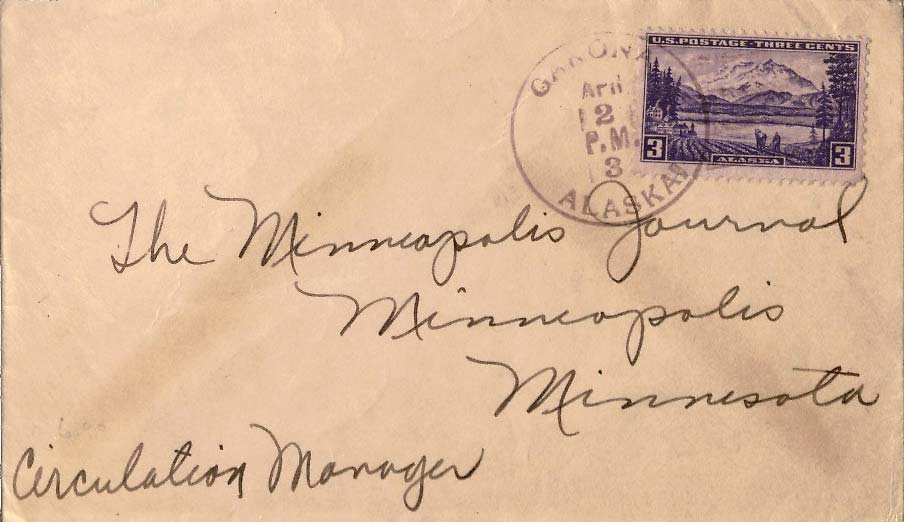 U.S. POSTAGE - THREE CENTS
3 ALASKA 3
Apr
2
P.M.
3
ALASKA
The Minneapolis Journal
Minneapolis
Minnesota
Circulation Manager